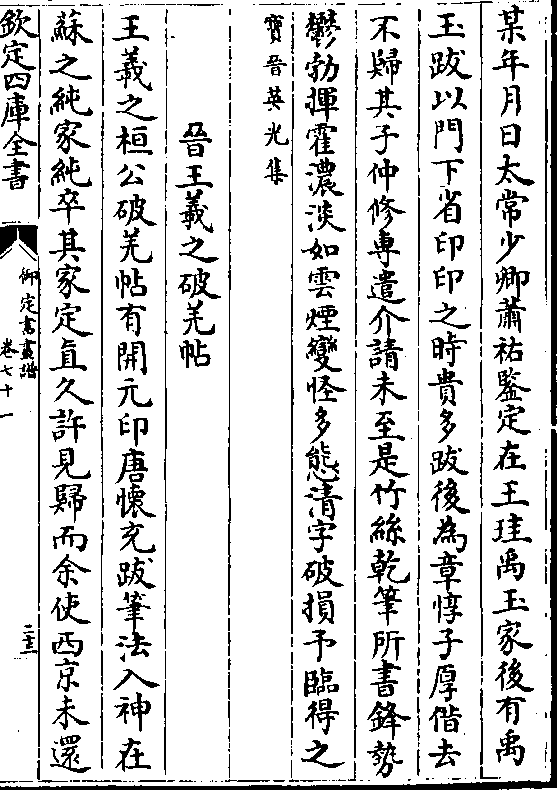 某年月日太常少卿蕭祐鑒定在王珪禹玉家後有禹
玉跋以門下省印印之時貴多跋後為章惇子厚借去
不歸其子仲修專遣介請未至是竹絲乾筆所書鋒勢
鬱勃揮霍濃淡如雲煙變怪多態清字破損予臨得之
寶晉英光集
晉王羲之破羌帖
王羲之桓公破羌帖有開元印唐懷充跋筆法入神在
蘇之純家純卒其家定直久許見歸而余使西京未還
欽定四庫全書
御定書畫譜
卷七十一
二十三